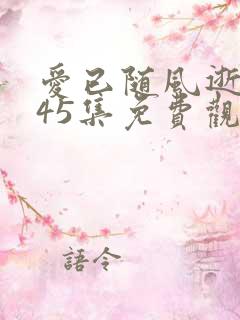 愛已随風逝
45集免費觀
語令